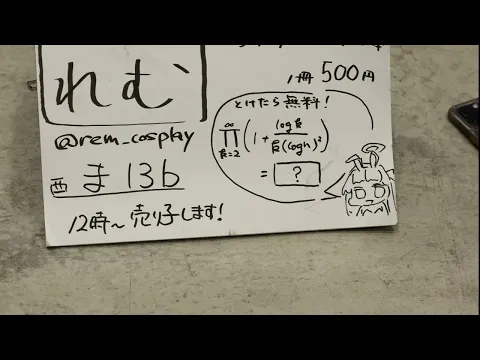 れむ
@rem_cosplay
西 ま13b
12時～売り子します!
1冊 500円
とけたら無料!
∞
∏ (1 + log k / k(log k)²)
k=2
= ?